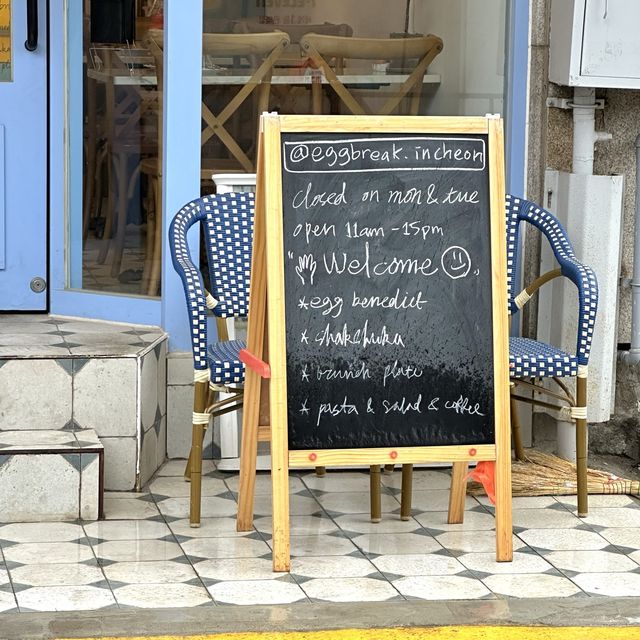 @eggbreak.incheon
closed on mon & tue
open 11am - 15pm
"Welcome
*egg benedict
* shakshuka
* brunch plate
* pasta & salad & coffee